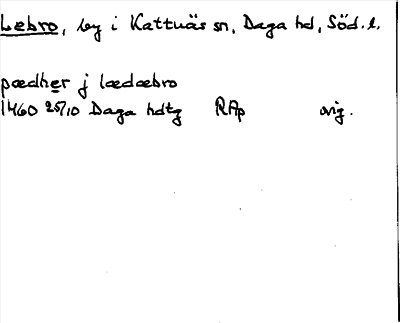 Læbro, by i Kattnäs sn, Daga hd, Söd. l.
pædher j lædæbro
1460 25/10 Daga hdtg RAp orig.